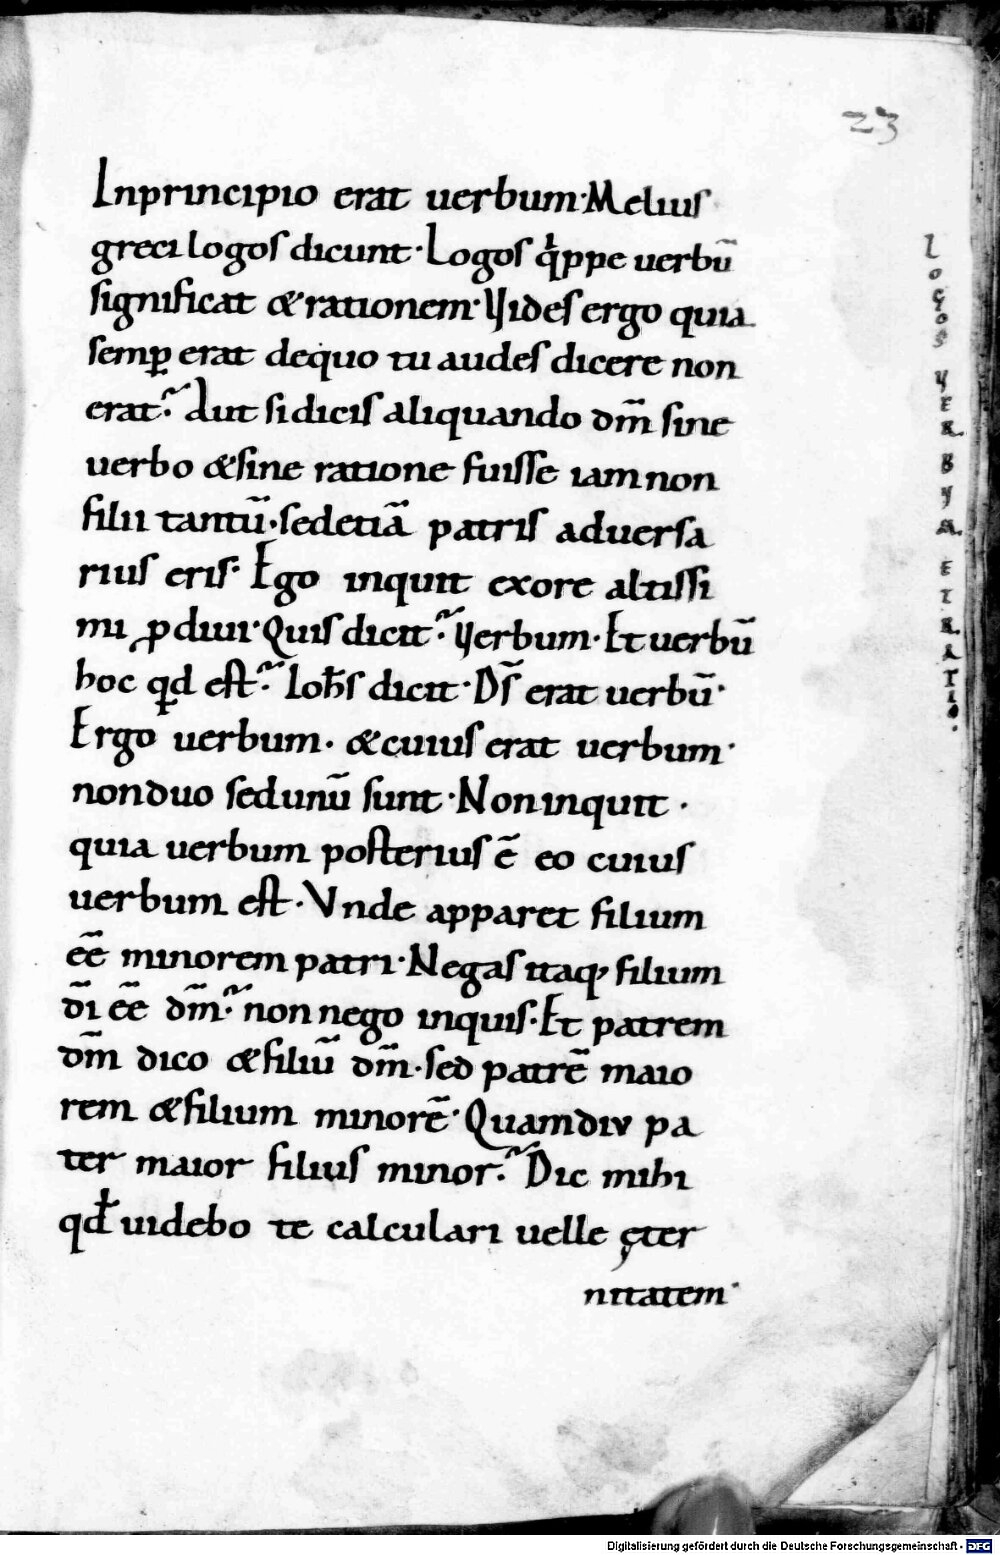 23
Inprincipio erat uerbum·Melius
greci logos dicunt·Logos qͥppe uerbū
significat &rationem·Vides ergo quia
semꝑ erat dequo tu audes dicere non
erat? Aut si dicis aliquando dm̄ sine
uerbo &sine ratione fuisse iam non
filii tantū·sedetiā patris aduersa
rius eris· Ego inquit exore altissi
mi ꝓdiui·Quis dicit? Verbum·Et uerbū
hoc qd̛ est? Ioh̄s dicit·Ds̄ erat uerbū·
Ergo uerbum· &cuius erat uerbum·
nonduo sedunū sunt·Non inquit·
quia uerbum posterius ē eo cuius
uerbum est·Vnde apparet filium
eē minorem patri·Negas itaq; filium
dī eē dm̄? non nego inquis·Et patrem
dm̄ dico &filiū dm̄·sed patrē maio
rem &filium minorē·Quamdiu pa
ter maior filius minor? Dic mihi
qd̛ uidebo te calculari uelle ęter
nitatem·
LOGOS VERBVM ET RATIO.
Digitalisierung gefördert durch die Deutsche Forschungsgemeinschaft - DFG